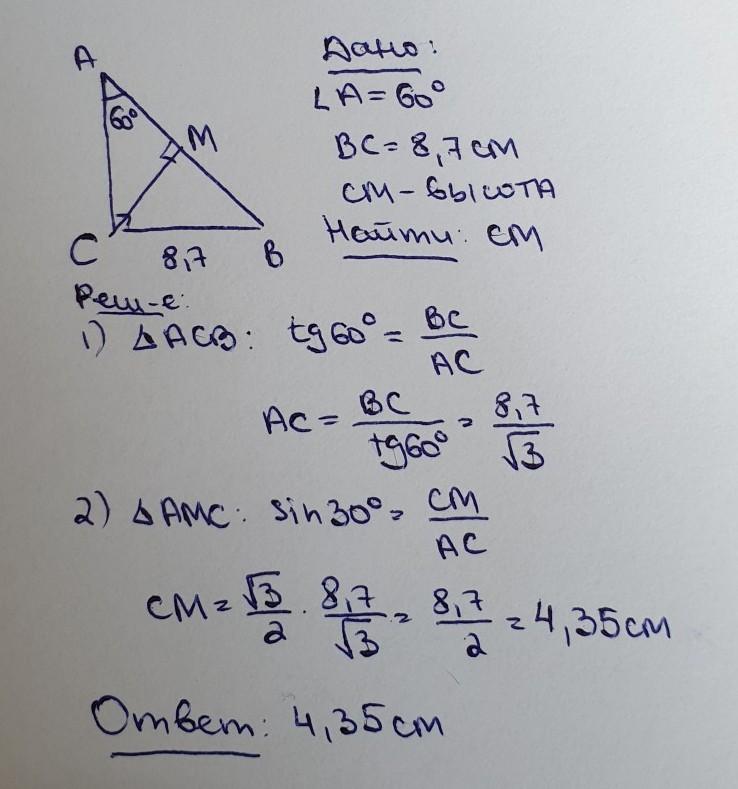 A
60°
M
C
8,7
B
Дано:
∠A=60°
BC=8,7см
CM-высота
Найти: CM
Реш-е:
1) △ACB: tg60°= BC/AC
AC = BC/tg60° = 8,7/√3
2) △AMC: sin30°= CM/AC
CM = √3/2 · 8,7/√3 = 8,7/2 = 4,35см
Ответ: 4,35см